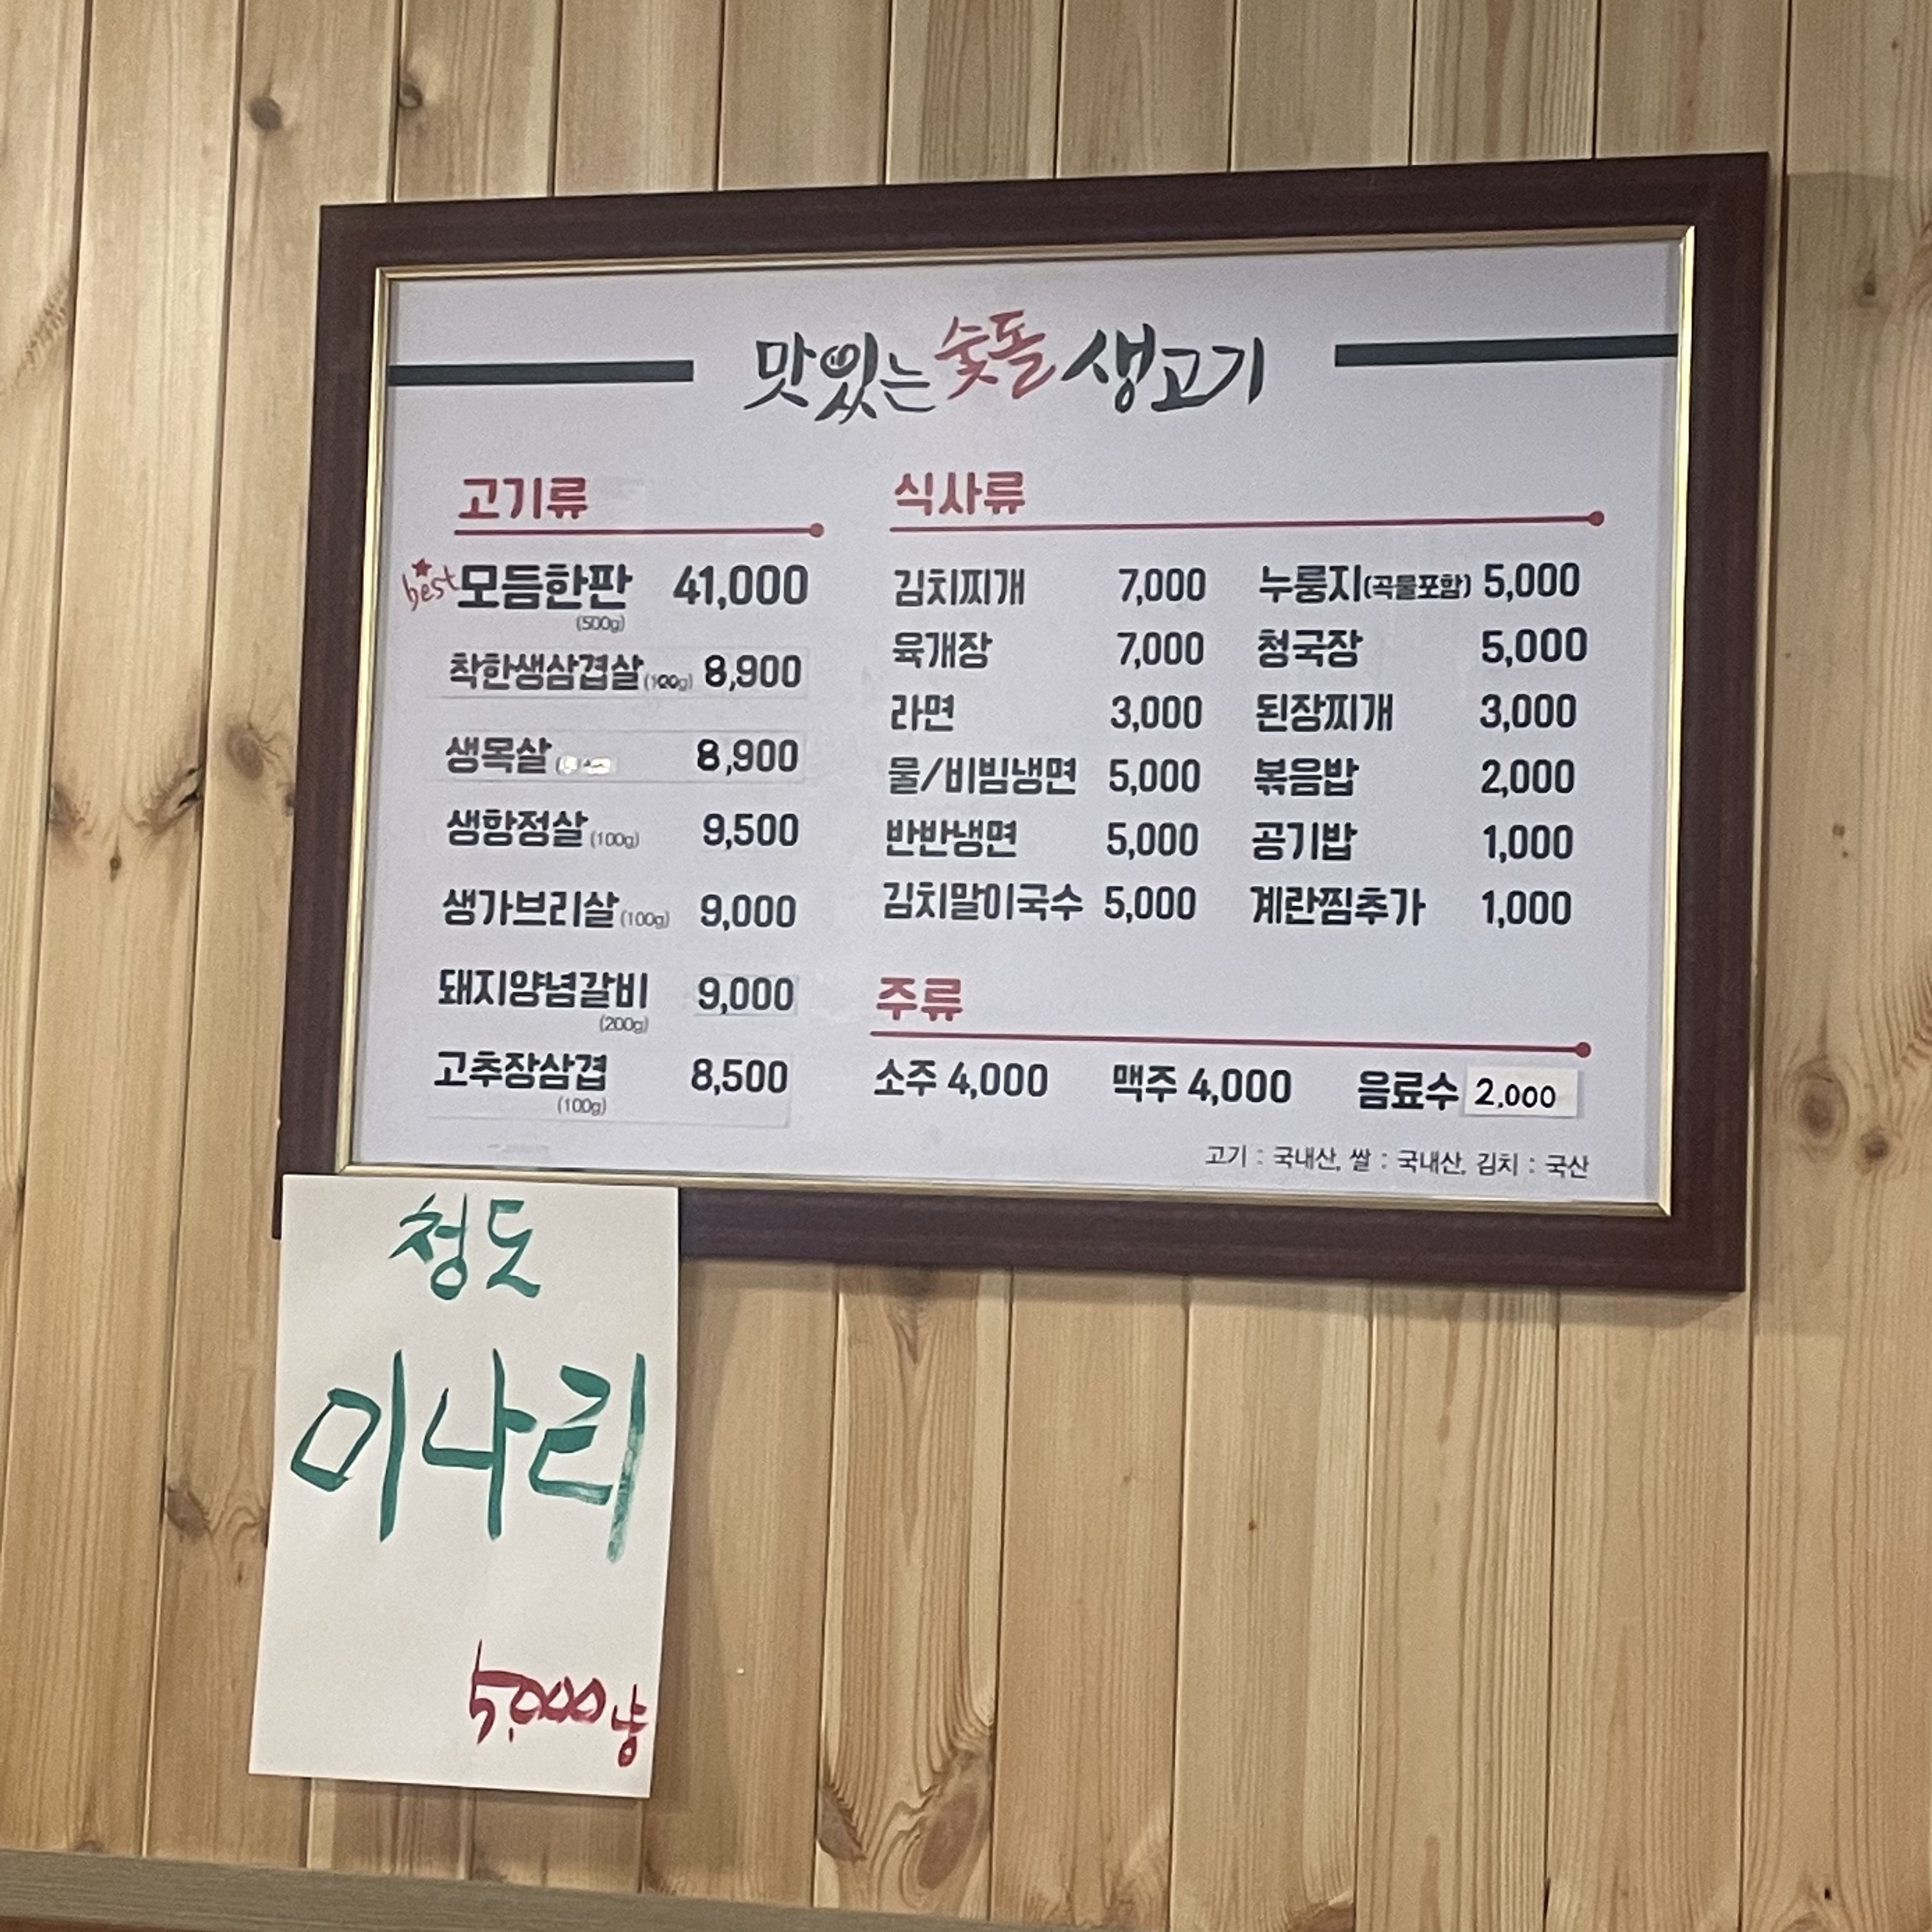 맛있는 숯돌 생고기
고기류
best 모듬한판 41,000
(500g)
착한생삼겹살(100g) 8,900
생목살 8,900
생항정살(100g) 9,500
생가브리살(100g) 9,000
돼지양념갈비 9,000
(200g)
고추장삼겹 8,500
(100g)
식사류
김치찌개 7,000
육개장 7,000
라면 3,000
물/비빔냉면 5,000
반반냉면 5,000
김치말이국수 5,000
누룽지(곡물포함) 5,000
청국장 5,000
된장찌개 3,000
볶음밥 2,000
공기밥 1,000
계란찜추가 1,000
주류
소주 4,000 맥주 4,000 음료수 2,000
고기 : 국내산, 쌀 : 국내산, 김치 : 국산
청도
미나리
5,000냥